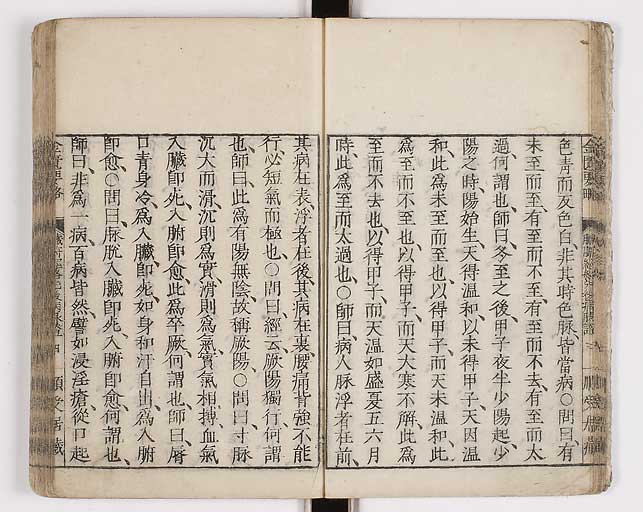 色青而反色白非其時色脉皆當病○問曰有
未至而至有至而不至有至而不去有至而太
過何謂也師曰冬至之後甲子夜半少陽起少
陽之時陽始生天得溫和以未得甲子天因溫
和此爲未至而至也以得甲子而天未溫和此
至而不去也以得甲子而天大寒不解此爲
至而不去也以得甲子而天溫如盛夏五六月
時此爲至而太過也○師曰病人脉浮者在前
其病在表浮者在後其病在裏腰痛背強不能
行必短氣而極也○問曰經云厥陽獨行何謂
也師曰此爲有陽無陰故稱厥陽○問曰寸脉
沉大而滑沉則爲實滑則爲氣實氣相搏血氣
入臟即死入腑即愈此爲卒厥何謂也師曰脣
口青身冷爲入臟即死如身和汗自出爲入腑
即愈○問曰脉脫入臟即死入腑即愈何謂也
師曰非爲一病百病皆然譬如浸淫瘡從口起